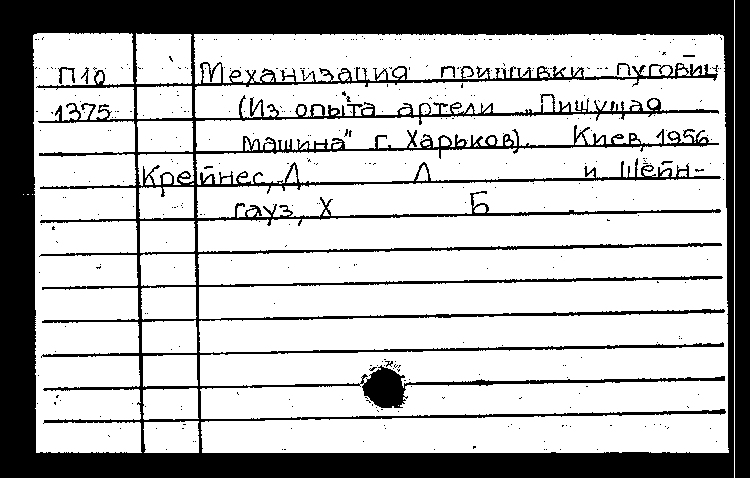 П10 Механизация пришивки пуговиц
1375 (Из опыта артели „Пишущая
машина" г. Харьков). Киев, 1956
Крейнес, Д. Л и Шейн-
гауз, Х Б